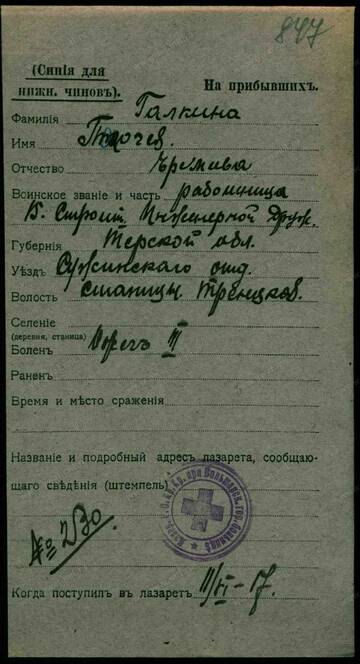 847
(Синія для
нижн. чиновъ).
На прибывшихъ.
Фамилія Галкина
Имя
Отчество
Воинское званіе и часть работница
Строит. Инженерной Друж.
Губернія Терской обл.
Уѣздъ Сунженскаго отд.
Волость станицы Троицкой
Селеніе
(деревня, станица)
Боленъ III
Раненъ
Время и мѣсто сраженія
Названіе и подробный адресъ лазарета, сообщаю-
щаго свѣдѣнія (штемпель)
№ 230
Когда поступилъ въ лазаретъ 11/VI-17.